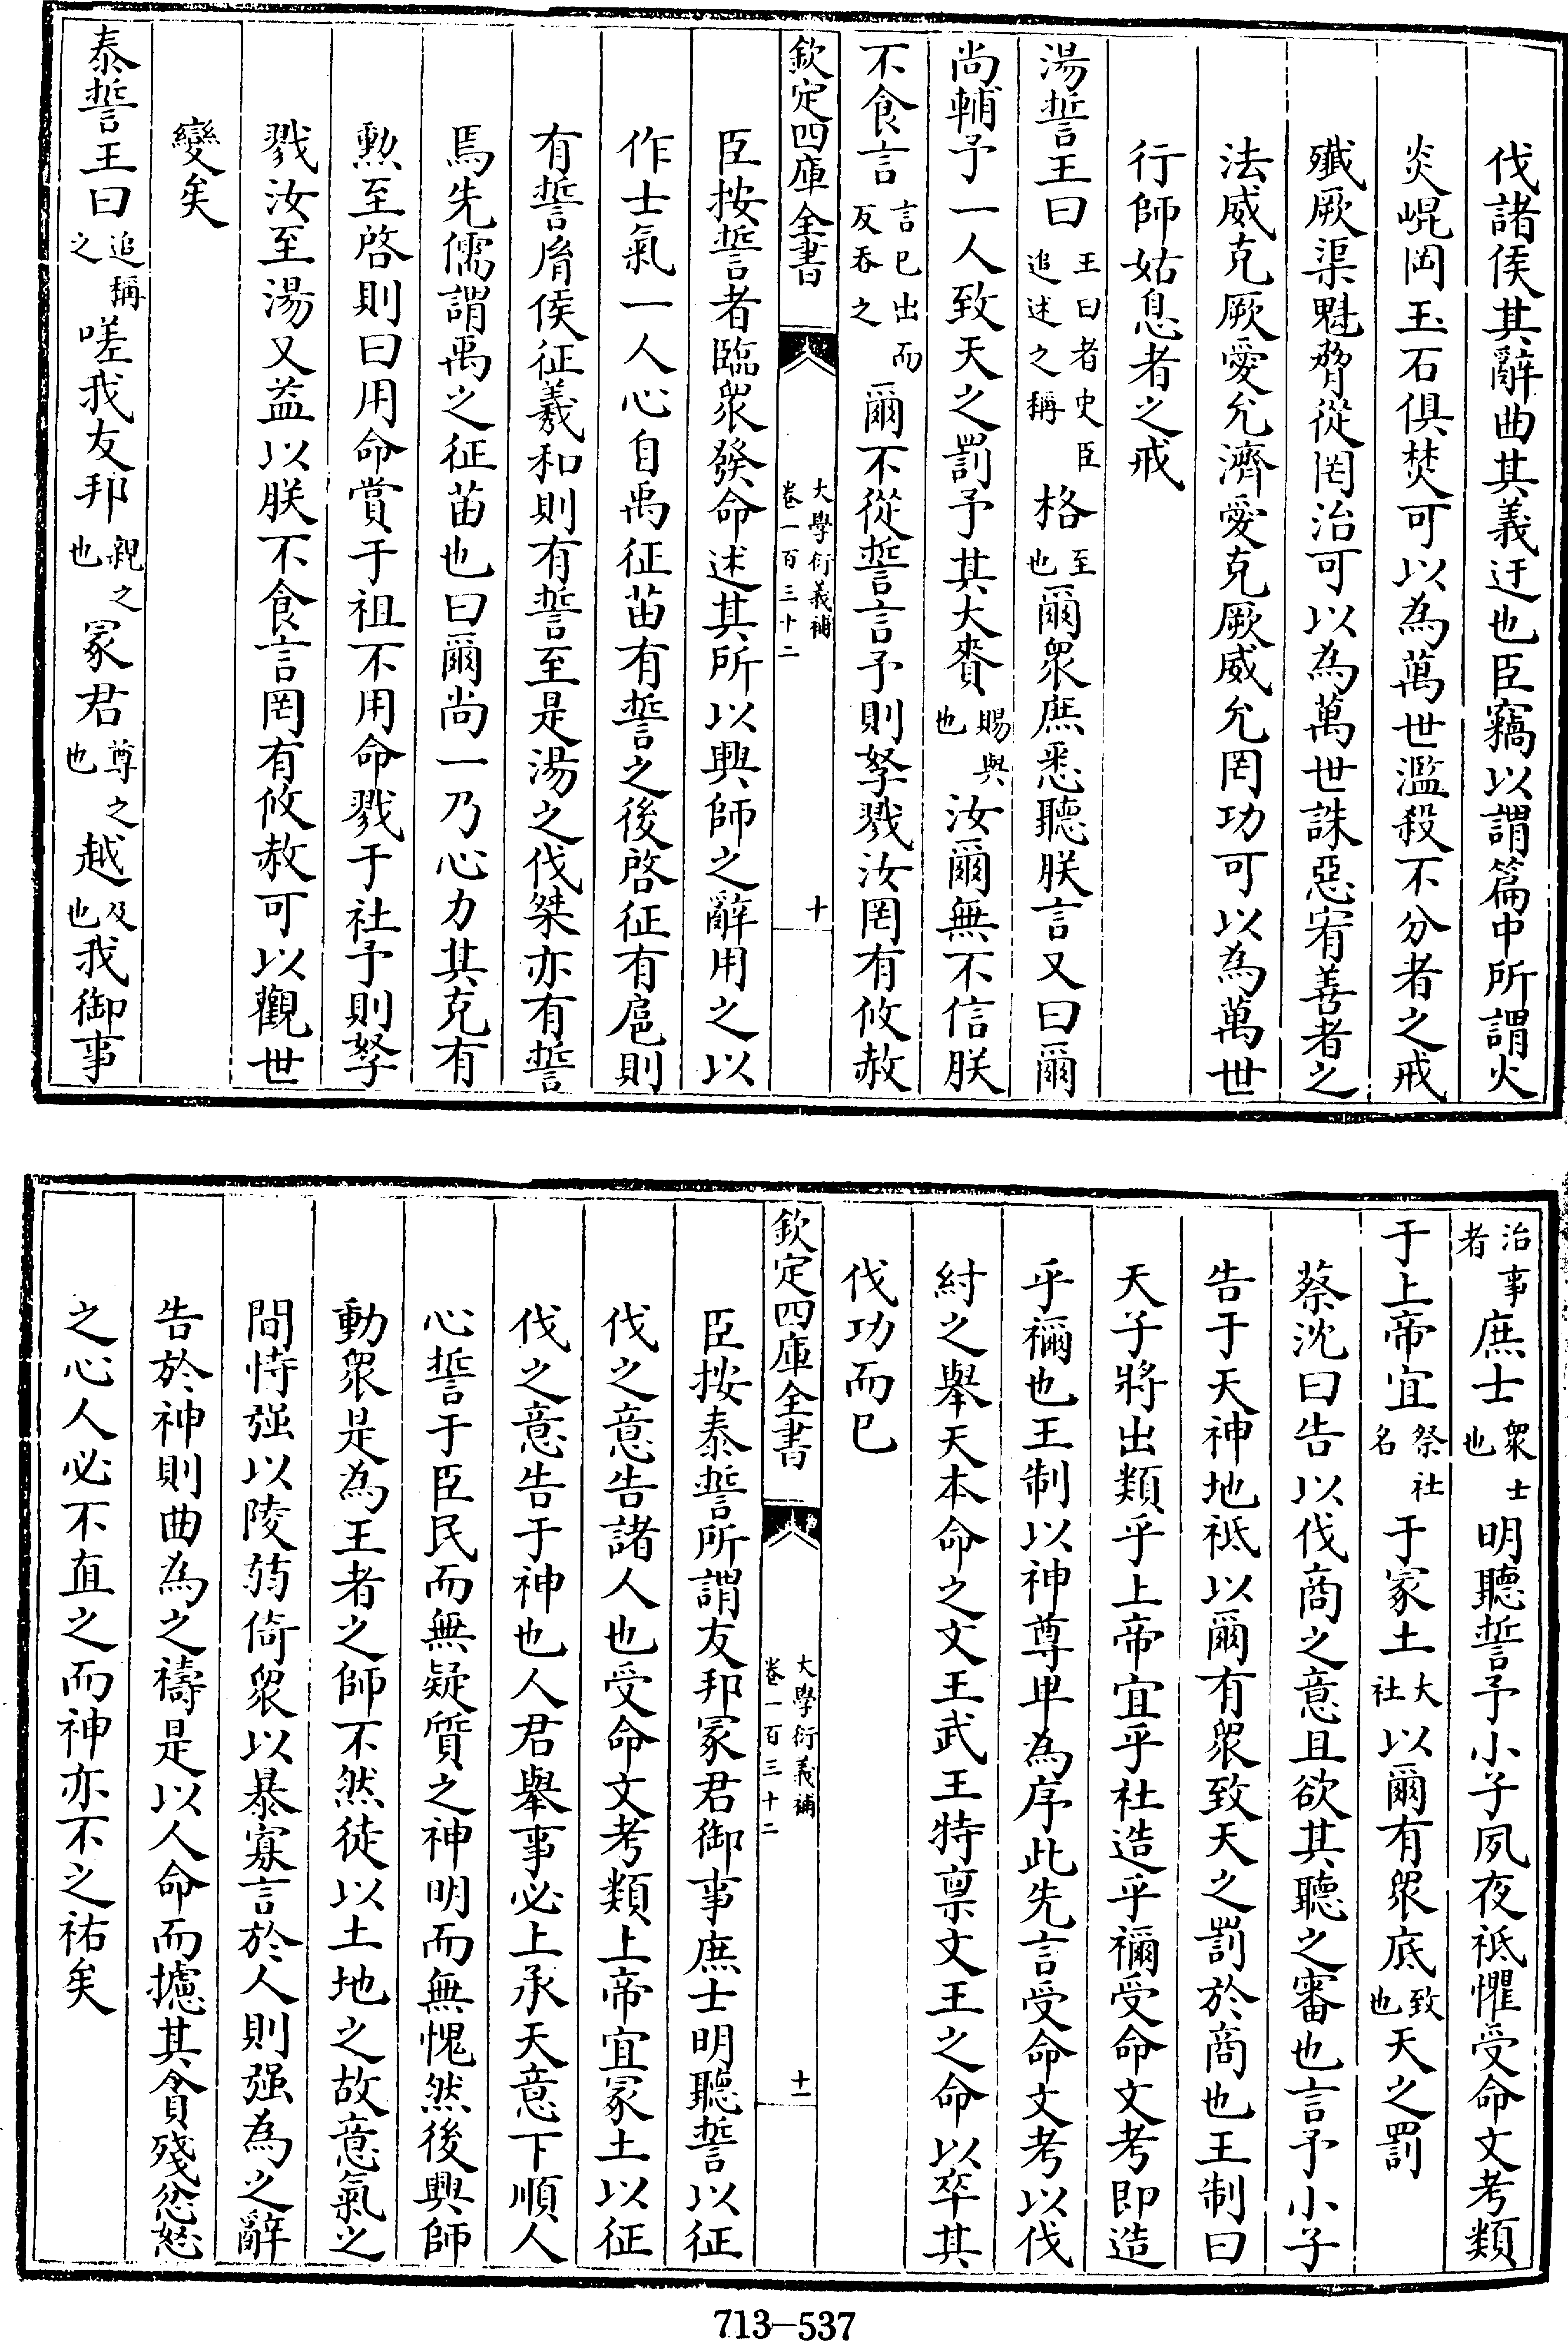 伐諸侯其辭曲其義迂也臣竊以謂篇中所謂火
炎崐岡玉石俱焚可以為萬世濫殺不分者之戒
殲厥渠魁脅從罔治可以為萬世誅惡宥善者之
法威克厥愛允濟愛克厥威允罔功可以為萬世
行師姑息者之戒
湯誓王曰王曰者史臣追述之稱格至也爾眾庶悉聽朕言又曰爾
尚輔予一人致天之罰予其大賚賜與也汝爾無不信朕
不食言言已出而反吞之爾不從誓言予則孥戮汝罔有攸赦
欽定四庫全書 大學衍義補 卷一百三十二 十
臣按誓者臨眾發命述其所以興師之辭用之以
作士氣一人心自禹征苗有誓之後啓征有扈則
有誓胤侯征羲和則有誓至是湯之伐桀亦有誓
焉先儒謂禹之征苗也曰爾尚一乃心力其克有
勲至啓則曰用命賞于祖不用命戮于社予則孥
戮汝至湯又益以朕不食言罔有攸赦可以觀世
變矣
泰誓王曰追稱之嗟我友邦親之也冢君尊之也越及也我御事
治事者庶士眾士也明聽誓予小子夙夜祗懼受命文考類
于上帝宜祭社名于冢土大社以爾有眾底致也天之罰
蔡沈曰告以伐商之意且欲其聽之審也言予小子
告于天神地祗以爾有眾致天之罰於商也王制曰
天子將出類乎上帝宜乎社造乎禰受命文考即造
乎禰也王制以神尊卑為序此先言受命文考以伐
紂之舉天本命之文王武王特稟文王之命以卒其
伐功而已
欽定四庫全書 大學衍義補 卷一百三十二 十一
臣按泰誓所謂友邦冢君御事庶士明聽誓以征
伐之意告諸人也受命文考類上帝宜冢土以征
伐之意告于神也人君舉事必上承天意下順人
心誓于臣民而無疑質之神明而無愧然後興師
動眾是為王者之師不然徒以土地之故意氣之
間恃强以陵弱倚眾以暴寡言於人則强為之辭
告於神則曲為之禱是以人命而攄其貪殘忿怒
之心人必不直之而神亦不之祐矣
713—537